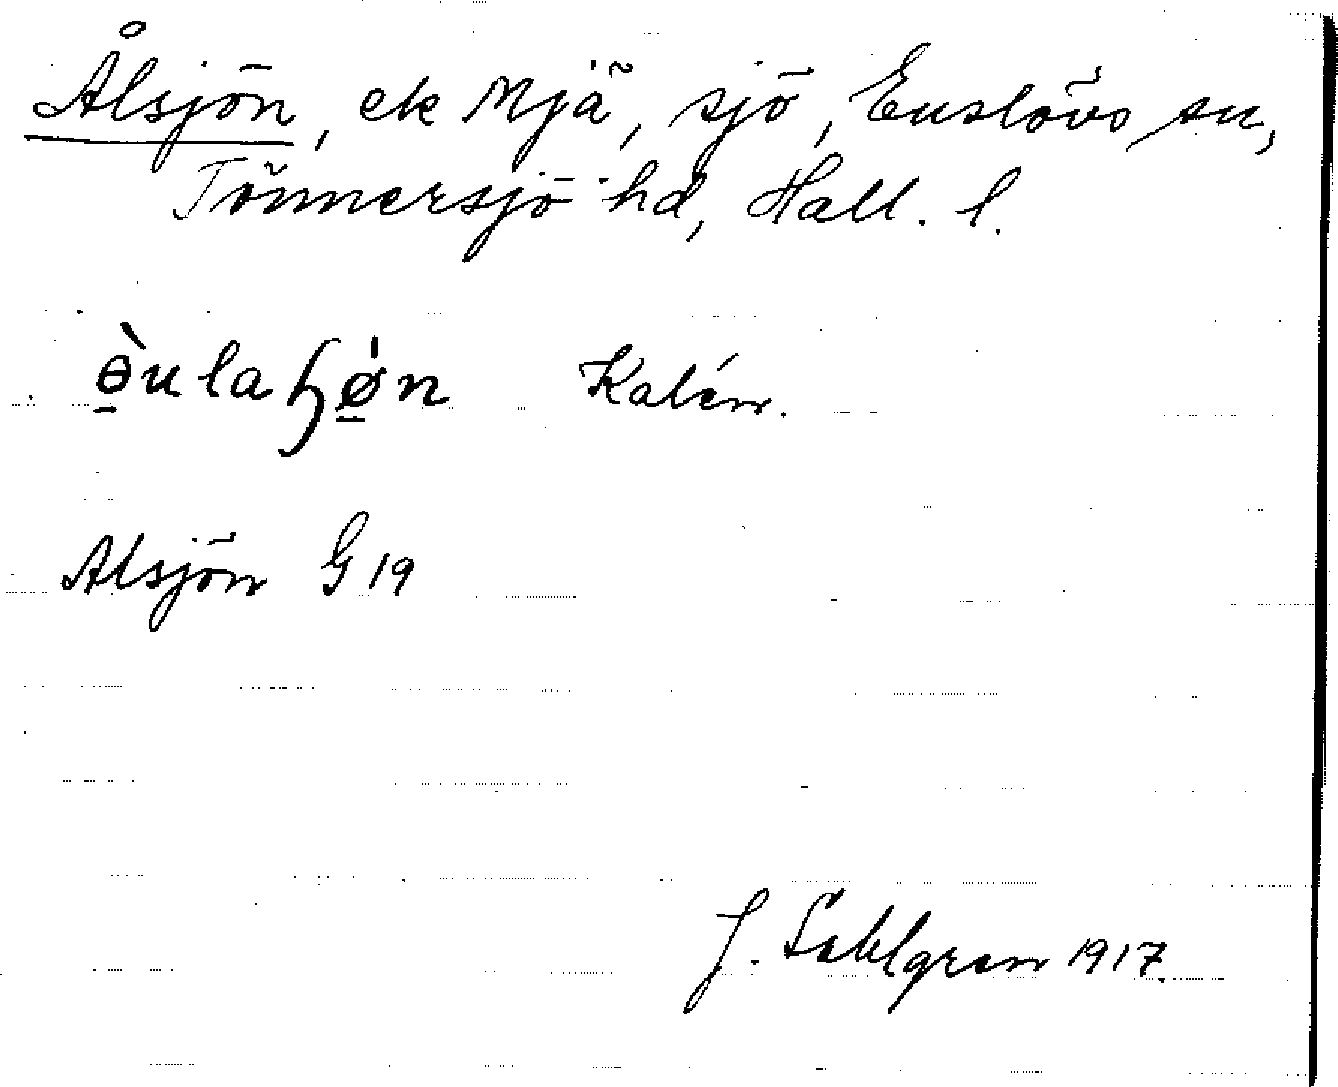 Ålsjön, ek Mjä, sjö, Enslövs sn,
Tönnersjö hd, Hall. l.
ɵ̀ulaɧø̀n Kalén.
Alsjön G 19
J. Sahlgren 1917.